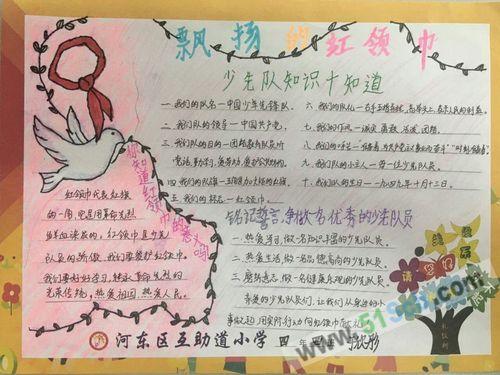 飘扬的红领巾
少先队知识十知道
一、我们的队名—中国少年先锋队。
二、我们队的领导—中国共产党。
三、我们队的目的—团结教育队员听
党话,
四、我们的队旗—五角星加火炬的红旗。
五、我们的标志—红领巾。
六、我们的队礼—右手五指并拢,高举头上,表示人民的利益
七、我们的作风—诚实、勇敢、活泼、团结。
九、我们队的小主人—每一位少先队员。
十、我们队的生日—一九四九年十月十三日。
你知道红领巾的意义吗
红领巾代表红旗
的一角,它是用革命先烈
的鲜血染成的。红领巾是少先
队员的骄傲,我们要爱护红领巾。
我们要好好学习,继承革命先烈的
光荣传统,热爱祖国,热爱人民。
铭记誓言,争做一名优秀的少先队员
一、热爱学习,做一名知识丰富的少先队员。
二、热爱生活,做一名品德高尚的少先队员。
三、磨练意志,做一名健康乐观的少先队员。
亲爱的少先队员们,让我们从身边的小
事做起,用实际行动向红领巾
河东区互助道小学 四年